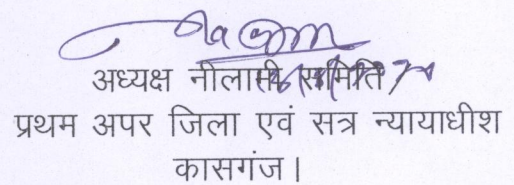 अध्यक्ष नीलामी समिति
प्रथम अपर जिला एवं सत्र न्यायाधीश
कासगंज।